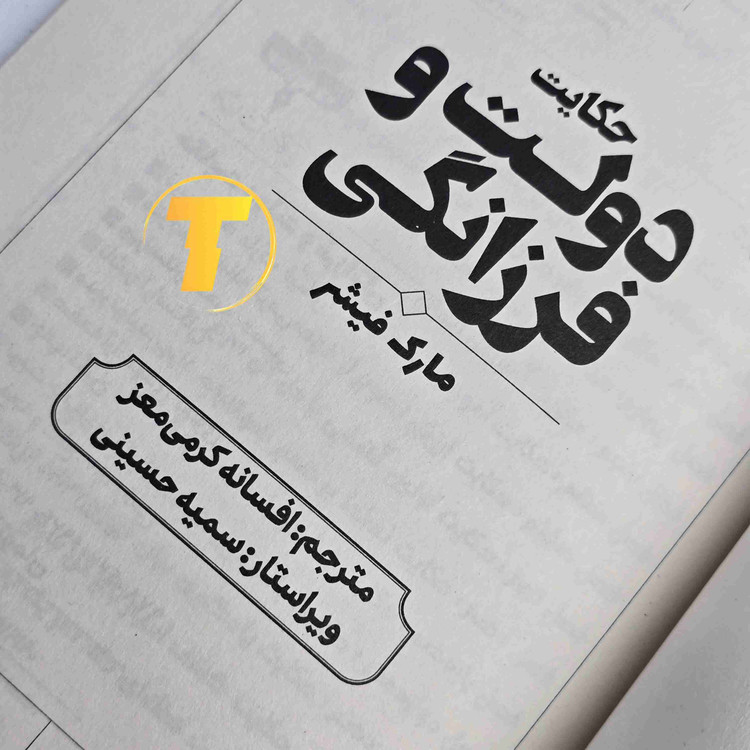 حکایت
دولت و
فرزانگی
مارک فیشر
مترجم: افسانه کرمی معز
ویراستار: سمیه حسینی
T